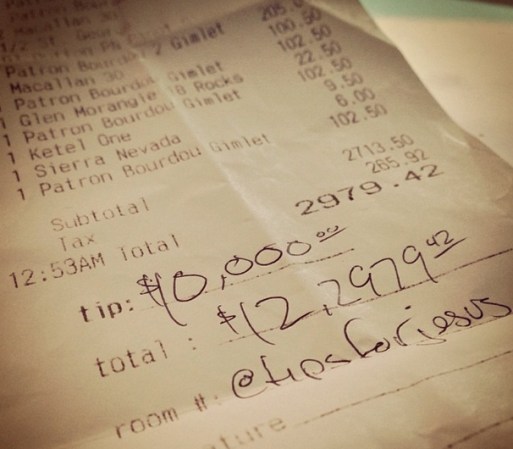 Patron Bourdou 2 Gimlet 205.0
Macallan 30 100.50
Patron Bourdou Gimlet 102.50
1 Glen Morangie 18 Rocks 22.50
1 Patron Bourdou Gimlet 102.50
1 Ketel One 9.50
1 Sierra Nevada 6.00
1 Patron Bourdou Gimlet 102.50
Subtotal 2713.50
Tax 265.92
12:53AM Total 2979.42
tip: $10,000 00
total : $12,2979 42
room #: @tipsforjesus